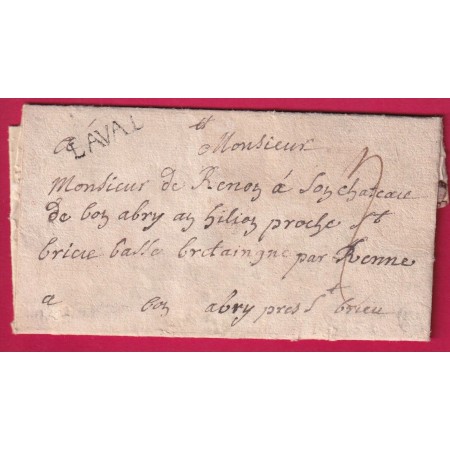 a
LAVAL
Monsieur
Monsieur de Renon á Son chateau
de bon abry an hilion proche St
brieu basse bretaingne par Renne
a bon abry pres St brieu